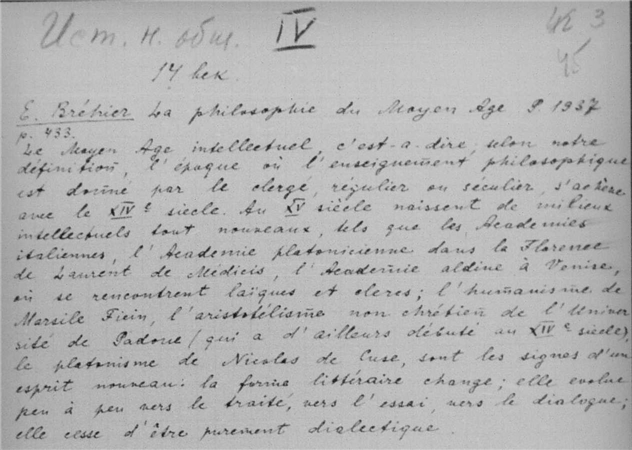 Ист. н. общ. IV
42 3
45
14 век.
E. Bréhier La philosophie du Moyen Age P. 1937
p. 433.
Le Moyen Age intellectuel, c'est-a-dire, selon notre
définition, l'époque où l'enseignement philosophique
est donné par le clergé, régulier ou séculier, s'achève
avec le XIVe siecle. Au XV siècle naissent de milieux
intellectuels tout nouveaux, tels que les Academies
italiennes, l'Academie platonicienne dans la Florence
de Laurent de Médicis, l'Académie aldine à Venise,
où se rencontrent laïques et clercs; l'humanisme de
Marsile Ficin, l'aristotélisme non chrétien de l'Univer
sité de Padoue (qui a d'ailleurs débuté au XIVe siècle),
le platonisme de Nicolas de Cuse, sont les signes d'un
esprit nouveau: la forme littéraire change; elle evolue
peu à peu vers le traité, vers l'essai, vers le dialogue;
elle cesse d'être purement dialectique.